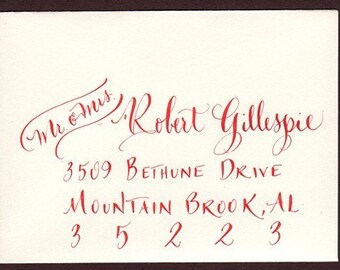 Mr. & Mrs. Robert Gillespie
3509 Bethune Drive
Mountain Brook, AL
3 5 2 2 3